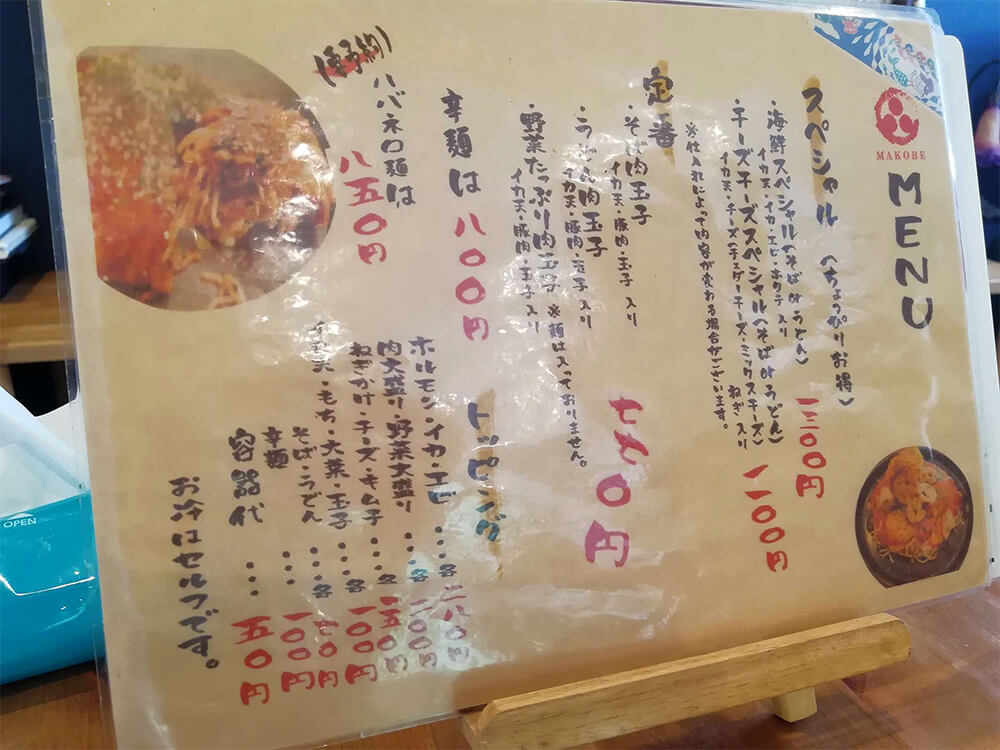 MAKOBE
MENU
スペシャル (ちょっぴりお得)
・海鮮スペシャル(そばorうどん)
イカ天・イカ・エビ・ホタテ入り
一三〇〇円
・チーズチーズスペシャル(そばorうどん)
イカ天・チーズ(チェダーチーズ・ミックスチーズ) ねぎ入り
一一〇〇円
※仕入れによって内容が変わる場合がございます。
定番
・そば肉玉子
イカ天・豚肉・玉子入り
・うどん肉玉子
イカ天・豚肉・玉子入り
・野菜たっぷり肉玉子 ※麺は入っておりません。
イカ天・豚肉・玉子入り
七七〇円
辛麺は 八〇〇円
ハバネロ麺は
八五〇円
トッピング
ホルモン・イカ・エビ ・・・各 二八〇円
肉大盛り・野菜大盛り ・・・各 二〇〇円
ねぎかけ・チーズ・キムチ ・・・各 一五〇円
イカ天・もち・大葉・玉子 ・・・各 一〇〇円
そば・うどん ・・・各
辛麺 ・・・ 一〇〇円
容器代 ・・・ 五〇円
お冷はセルフです。
OPEN